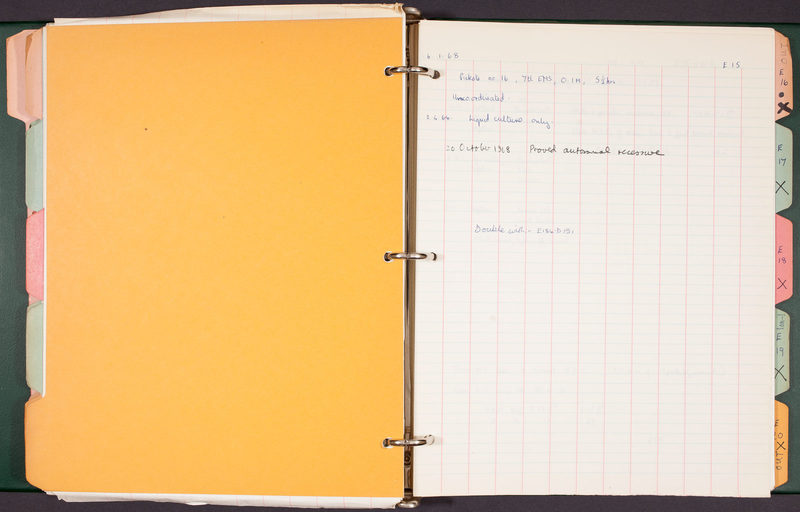 6.1.68
E15
Pickate no 16, 7th EMS, 0.1M, 5½ hrs
Uncoordinated.
Liquid culture only.
20 October 1968 Proved autosomal recessive
Double with:-
E
16
E
17
X
E
18
X
E
19
X
OUT